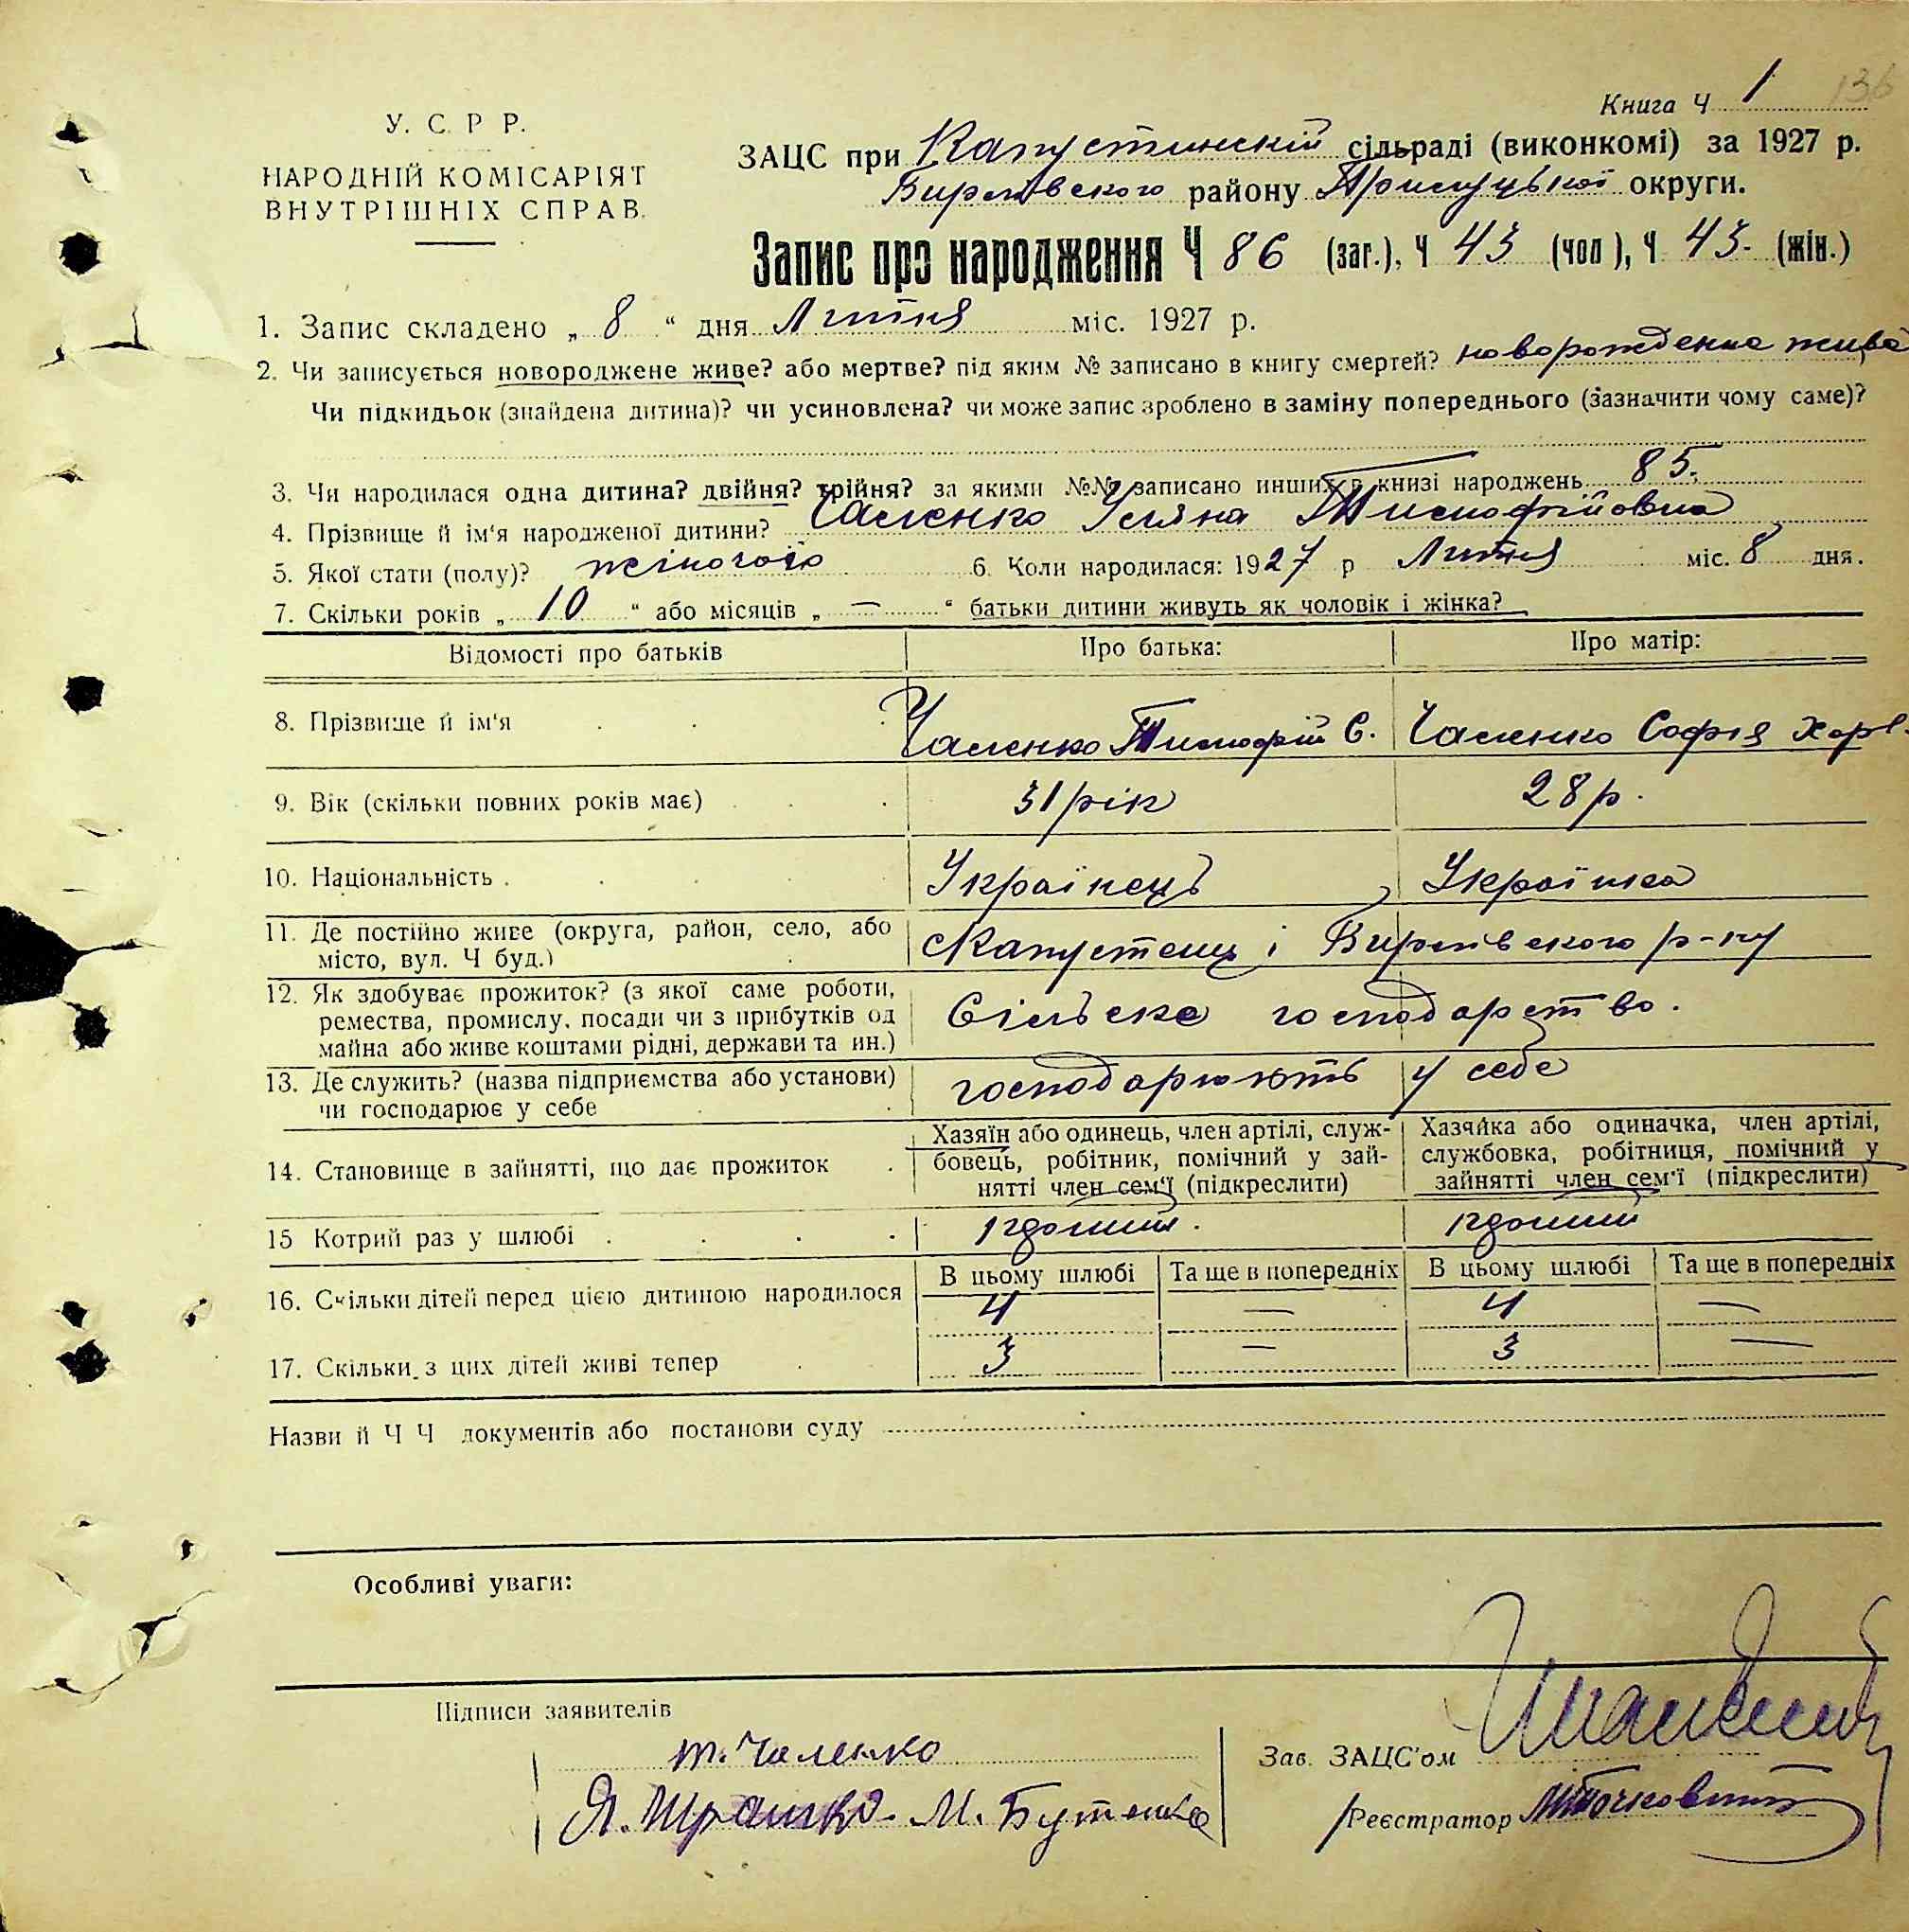 Книга Ч 1
136
У. С. Р. Р.
НАРОДНІЙ КОМІСАРІЯТ
ВНУТРІШНІХ СПРАВ.
ЗАЦС при Капустинскій сільраді (виконкомі) за 1927 р.
району Прилуцької округи.
Запис про народження Ч 86 (заг.), Ч 43 (чол), Ч 43. (жін.)
1. Запис складено „ 8 “ дня Липня міс. 1927 р.
2. Чи записується новороджене живе? або мертве? під яким № записано в книгу смертей? новорожденна жива
Чи підкидьок (знайдена дитина)? чи усиновлена? чи може запис зроблено в заміну попереднього (зазначити чому саме)?
3. Чи народилася одна дитина? двійня? трійня? за якими №№ записано инших в книзі народжень 85.
4. Прізвище й ім'я народженої дитини? Чаленко Уляна Тимофійовна
5. Якої стати (полу)? жіночого 6. Коли народилася: 1927 р Липня міс. 8 дня.
7. Скільки років „ 10 “ або місяців „ — “ батьки дитини живуть як чоловік і жінка?
Відомості про батьків Про батька: Про матір:
8. Прізвище й ім'я Чаленко Тимофій С. Чаленко Софія Хар.
9. Вік (скільки повних років має) 31 рік 28 р.
10. Національність Українець Українка
11. Де постійно живе (округа, район, село, або
місто, вул. Ч буд.) Капустенці р-ну
12. Як здобуває прожиток? (з якої саме роботи,
ремества, промислу, посади чи з прибутків од
майна або живе коштами рідні, держави та ин.) Сільське господарство.
13. Де служить? (назва підприємства або установи)
чи господарює у себе господарюють у себе
14. Становище в зайнятті, що дає прожиток
Хазяїн або одинець, член артілі, служ-
бовець, робітник, помічний у зай-
нятті член сем'ї (підкреслити)
Хазяйка або одиначка, член артілі,
службовка, робітниця, помічний у
зайнятті член сем'ї (підкреслити)
15 Котрий раз у шлюбі
В цьому шлюбі Та ще в попередніх В цьому шлюбі Та ще в попередніх
16. Скільки дітей перед цією дитиною народилося 4 — 4 —
17. Скільки з цих дітей живі тепер 3 — 3 —
Назви й Ч Ч документів або постанови суду
Особливі уваги:
Підписи заявителів
т. Чаленко
Я. М. Бутенко
Зав. ЗАЦС'ом
Реєстратор